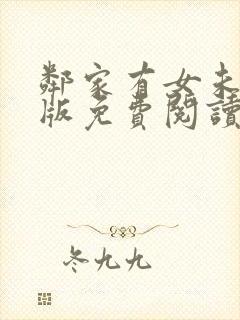 鄰家有女未
版免費閱讀
冬九九